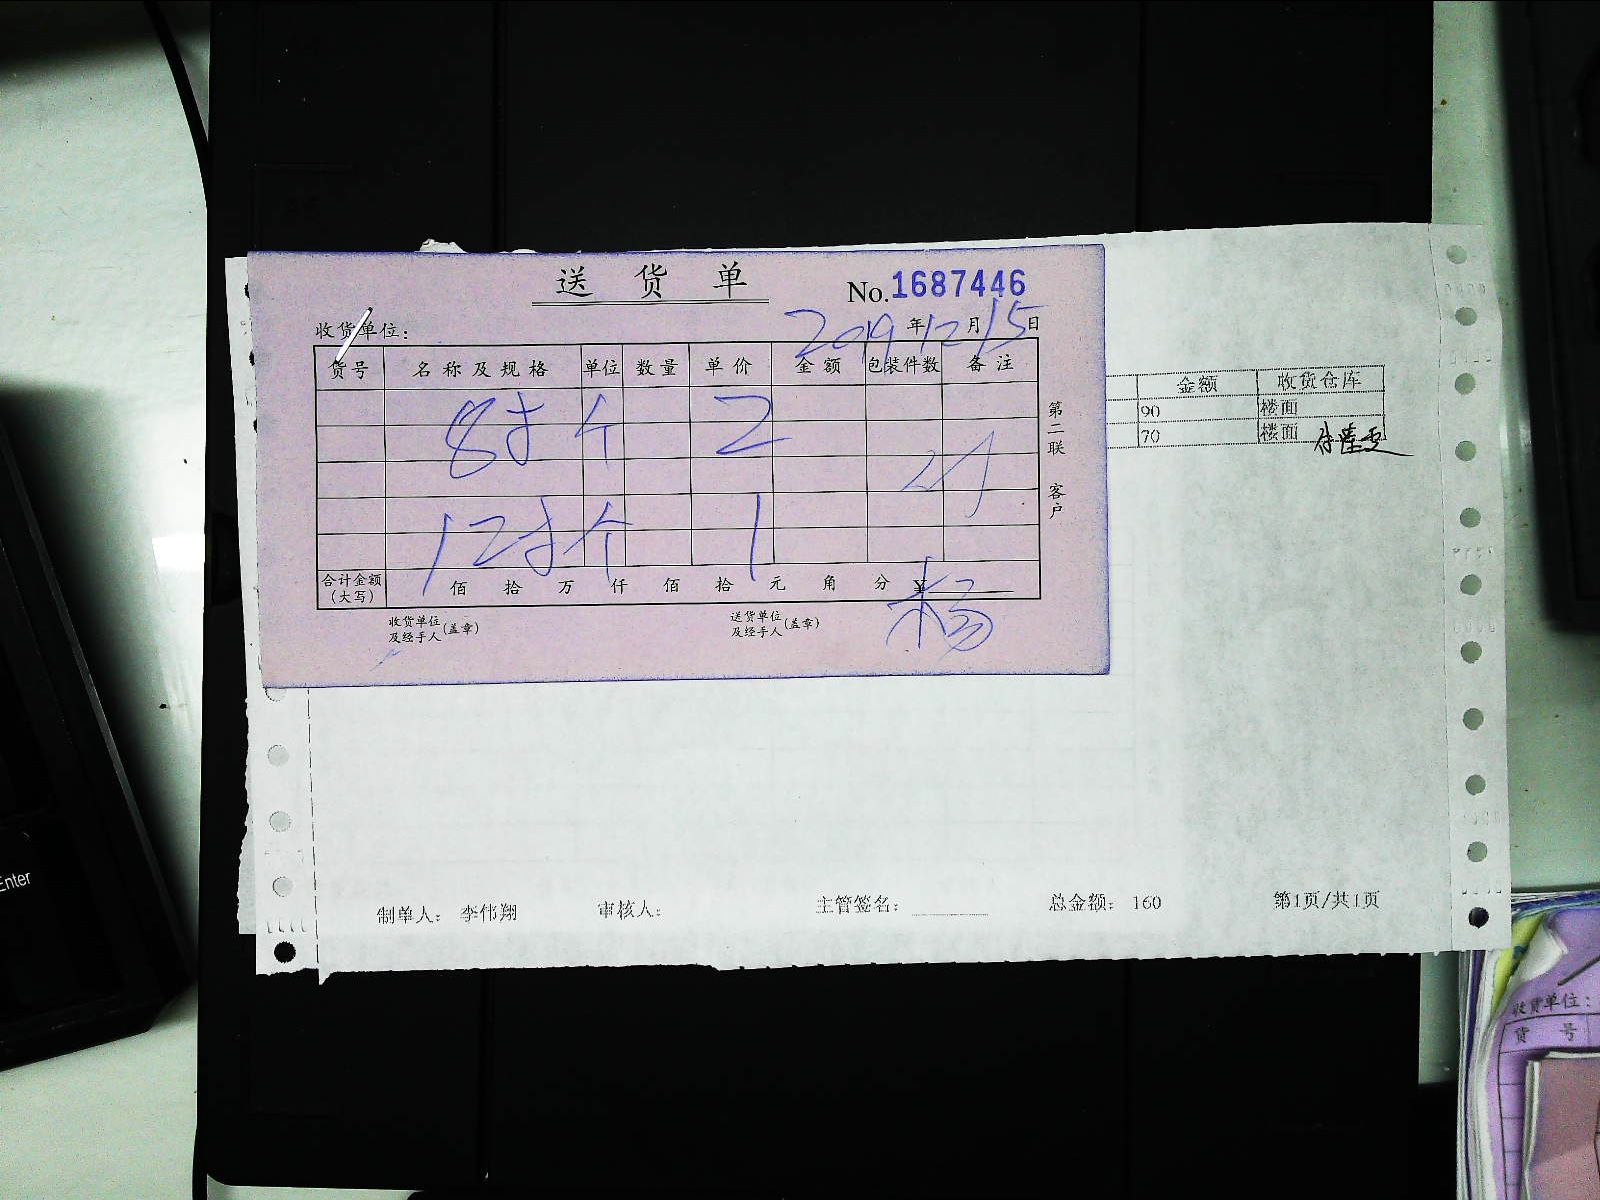 送货单
No.1687446
收货单位:
2019年12月15日
货号 名称及规格 单位 数量 单价 金额 包装件数 备注
8寸 个 2
12寸 个 1
合计金额(大写) 佰 拾 万 仟 佰 拾 元 角 分 ¥
收货单位及经手人(盖章) 送货单位及经手人(盖章) 杨
第二联 客户
金额 收货仓库
90 楼面
70 楼面
制单人: 李伟翔 审核人: 主管签名: 总金额: 160 第1页/共1页
Enter
收货单位:
货号